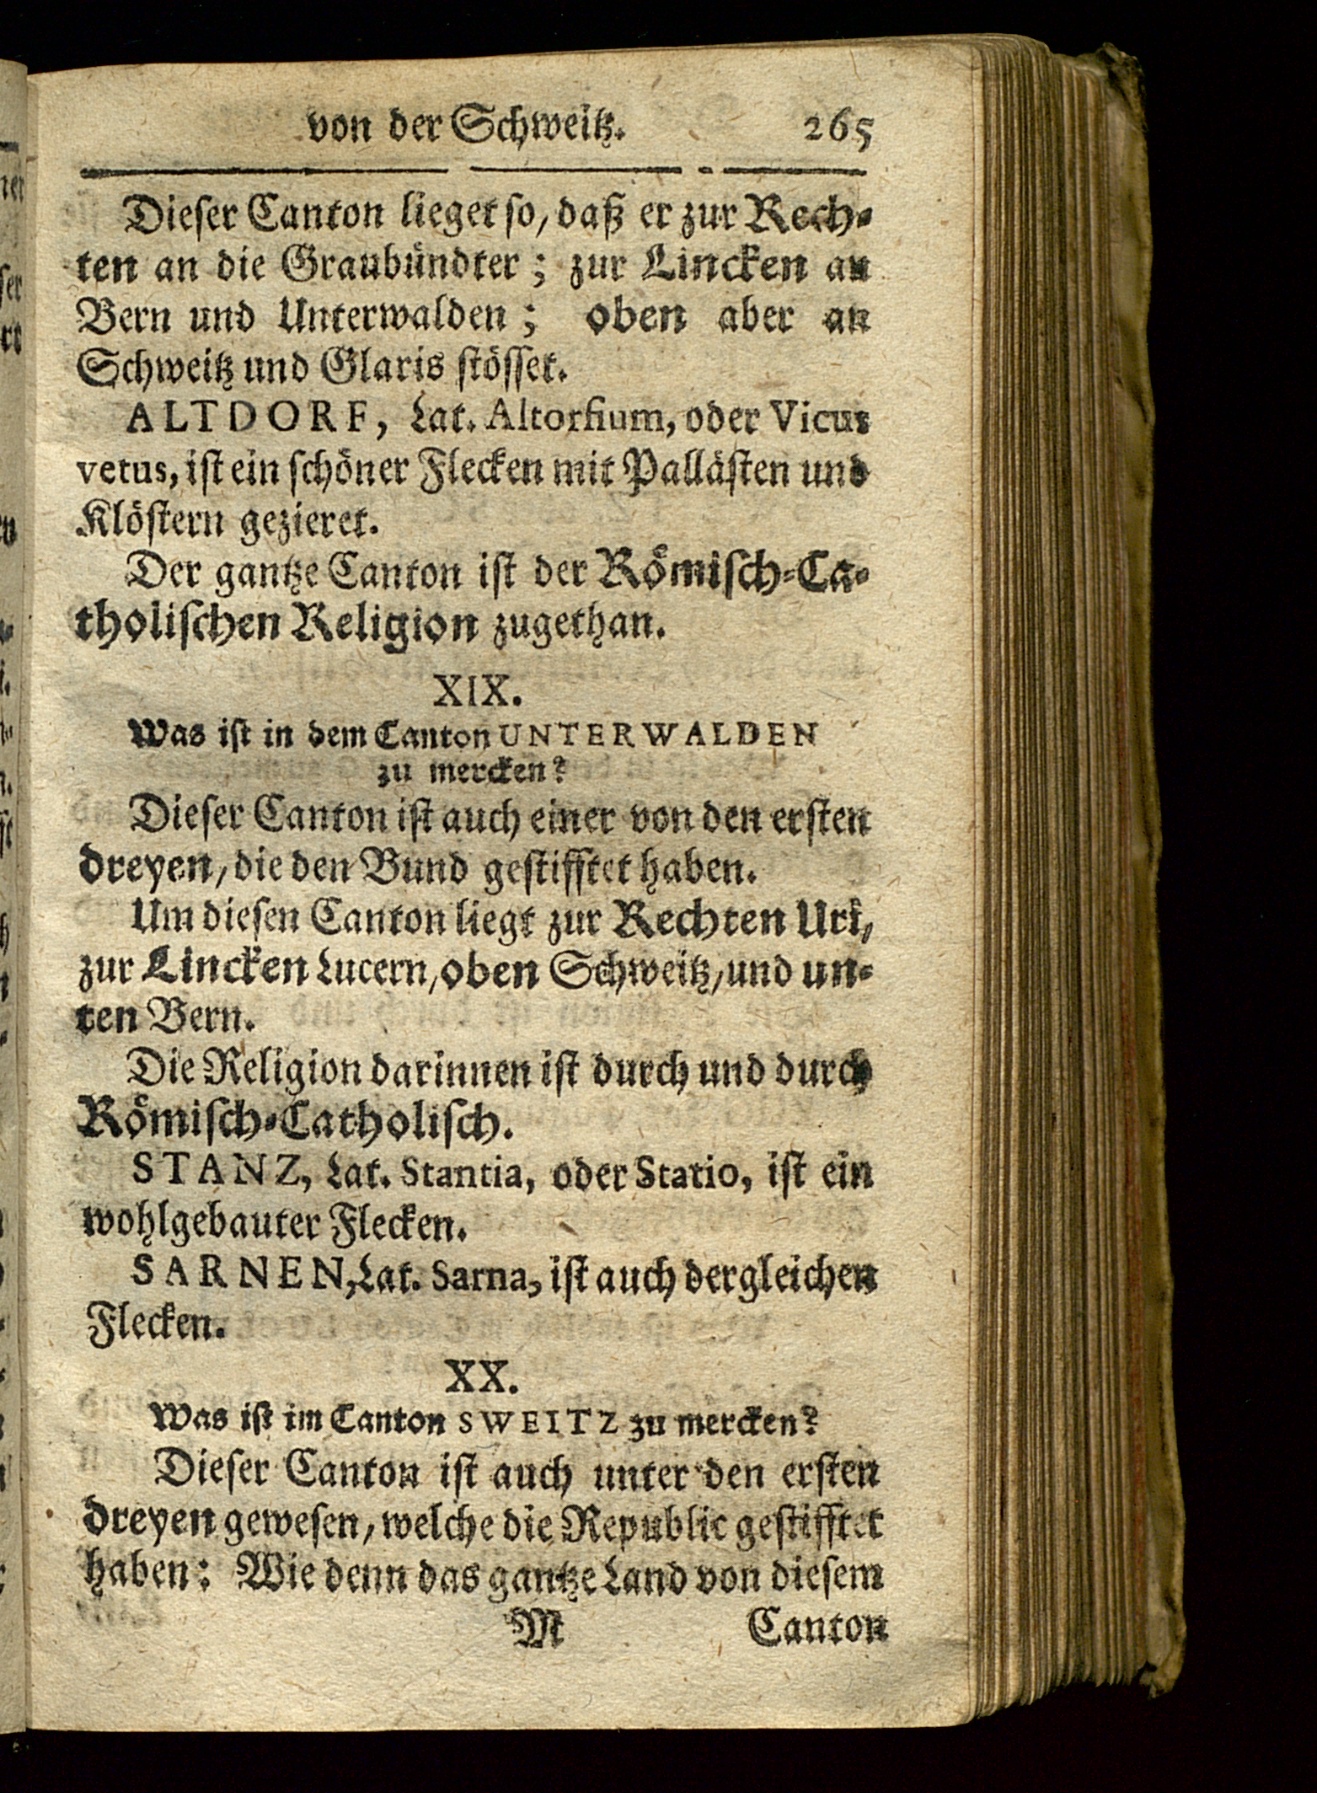 von der Schweitz. 265
Dieser Canton lieget so, daß er zur Rech-
ten an die Graubündter; zur Lincken an
Bern und Unterwalden; oben aber an
Schweitz und Glaris stösset.
ALTDORF, Lat. Altorfium, oder Vicus
vetus, ist ein schöner Flecken mit Pallästen und
Klöstern gezieret.
Der gantze Canton ist der Römisch-Ca-
tholischen Religion zugethan.
XIX.
Was ist in dem Canton UNTERWALDEN
zu mercken?
Dieser Canton ist auch einer von den ersten
dreyen, die den Bund gestifftet haben.
Um diesen Canton liegt zur Rechten Uri,
zur Lincken Lucern, oben Schweitz, und un-
ten Bern.
Die Religion darinnen ist durch und durch
Römisch-Catholisch.
STANZ, Lat. Stantia, oder Statio, ist ein
wohlgebauter Flecken.
SARNEN, Lat. Sarna, ist auch dergleichen
Flecken.
XX.
Was ist im Canton SWEITZ zu mercken?
Dieser Canton ist auch unter den ersten
dreyen gewesen, welche die Republic gestifftet
haben: Wie denn das gantze Land von diesem
M Canton